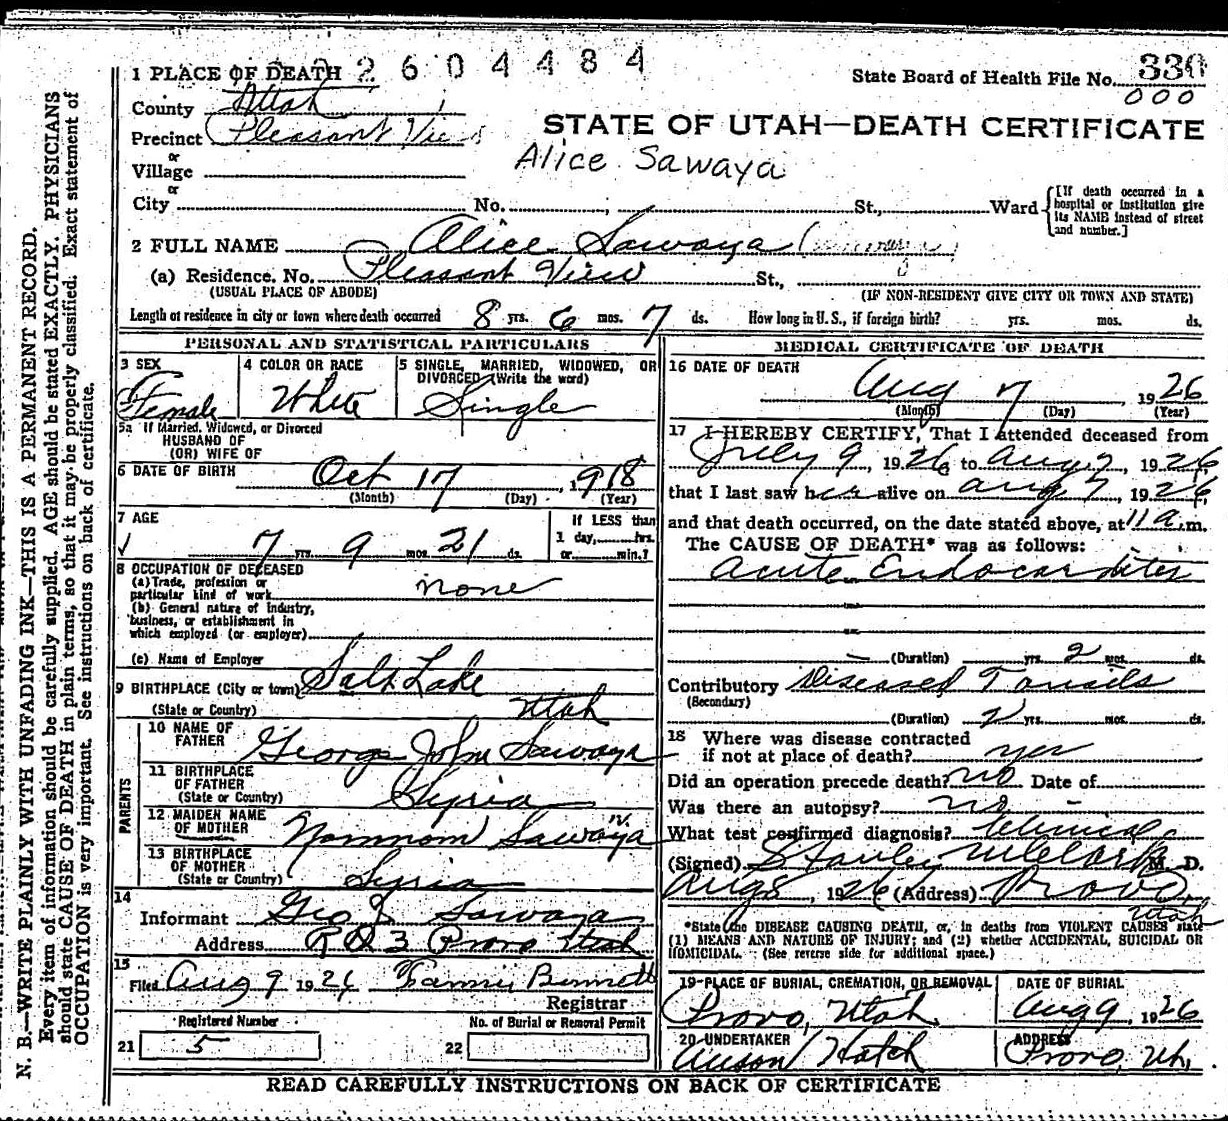 2604484
1 PLACE OF DEATH
State Board of Health File No. 330
000
County Utah
Precinct Pleasant View
STATE OF UTAH—DEATH CERTIFICATE
Alice Sawaya
or
Village
or
City No. , St., Ward
[If death occurred in a hospital or institution give its NAME instead of street and number.]
2 FULL NAME Alice Sawaya
(a) Residence. No. Pleasant View St.,
(USUAL PLACE OF ABODE) (IF NON-RESIDENT GIVE CITY OR TOWN AND STATE)
Length of residence in city or town where death occurred 8 yrs. 6 mos. 7 ds. How long in U. S., if foreign birth? yrs. mos. ds.
PERSONAL AND STATISTICAL PARTICULARS
3 SEX
Female
4 COLOR OR RACE
White
5 SINGLE, MARRIED, WIDOWED, OR DIVORCED (Write the word)
Single
5a If Married, Widowed, or Divorced
HUSBAND OF
(OR) WIFE OF
6 DATE OF BIRTH Oct 17, 1918
(Month) (Day) (Year)
7 AGE
7 yrs. 9 mos. 21 ds.
If LESS than
1 day, hrs.
or min.?
8 OCCUPATION OF DECEASED
(a) Trade, profession or
particular kind of work none
(b) General nature of Industry,
business, or establishment in
which employed (or employer)
(c) Name of Employer
9 BIRTHPLACE (City or town) Salt Lake
(State or Country) Utah
PARENTS
10 NAME OF
FATHER George John Sawaya
11 BIRTHPLACE
OF FATHER
(State or Country) Syria
12 MAIDEN NAME
OF MOTHER Nommom Sawaya
13 BIRTHPLACE
OF MOTHER
(State or Country) Syria
14
Informant Geo J Sawaya
Address R D 3 Provo Utah
15
Filed Aug 9 1926 Fannie Bennett
Registrar
Registered Number
21 5
No. of Burial or Removal Permit
22
MEDICAL CERTIFICATE OF DEATH
16 DATE OF DEATH
Aug 7 1926
(Month) (Day) (Year)
17 I HEREBY CERTIFY, That I attended deceased from
July 9, 1926 to Aug 7, 1926,
that I last saw her alive on Aug 7, 1926,
and that death occurred, on the date stated above, at 11 a.m.
The CAUSE OF DEATH* was as follows:
Acute Endocarditis
(Duration) yrs. 2 mos. ds.
Contributory Diseased Tonsils
(Secondary)
(Duration) 2 yrs. mos. ds.
18 Where was disease contracted
if not at place of death? yes
Did an operation precede death? no Date of
Was there an autopsy? no
What test confirmed diagnosis? Clinical
(Signed) Stanley M Clark M. D.
Aug 8, 1926 (Address) Provo, Utah
*State the DISEASE CAUSING DEATH, or, in deaths from VIOLENT CAUSES state
(1) MEANS AND NATURE OF INJURY; and (2) whether ACCIDENTAL, SUICIDAL OR
HOMICIDAL. (See reverse side for additional space.)
19 PLACE OF BURIAL, CREMATION, OR REMOVAL
Provo, Utah
DATE OF BURIAL
Aug 9, 1926
20 UNDERTAKER
Hatch
ADDRESS
Provo, Ut.
READ CAREFULLY INSTRUCTIONS ON BACK OF CERTIFICATE
N. B.—WRITE PLAINLY WITH UNFADING INK—THIS IS A PERMANENT RECORD.
Every item of information should be carefully supplied. AGE should be stated EXACTLY. PHYSICIANS
should state CAUSE OF DEATH in plain terms, so that it may be properly classified. Exact statement of
OCCUPATION is very important. See instructions on back of certificate.